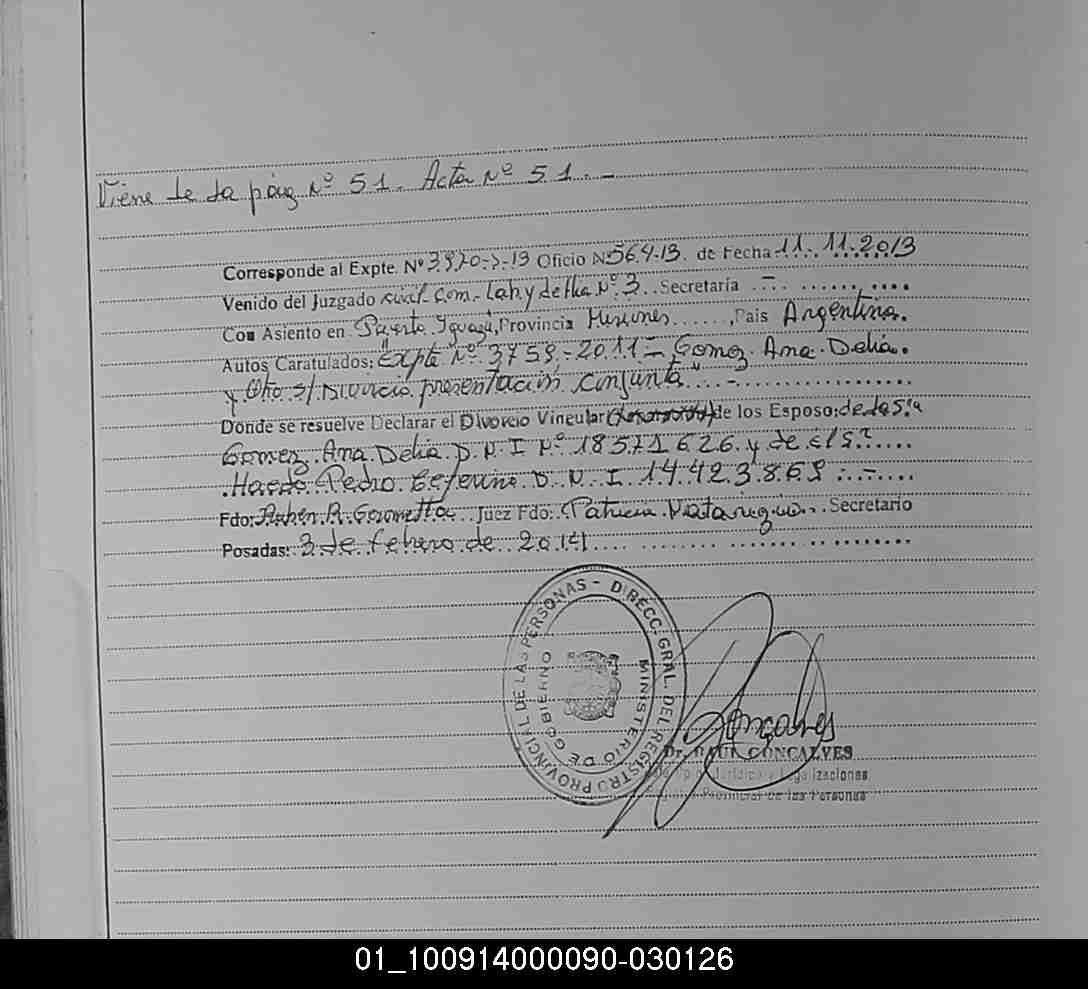 Viene de la pág Nº 51. Acta Nº 51.-
Corresponde al Expte. Nº 3970-J-13 Oficio Nº 564-13. de Fecha 11.11.2013
Venido del Juzgado civil. Com. Lab. y de Flia Nº 3. Secretaría -
Con Asiento en Puerto Iguazú, Provincia Misiones, País Argentina.
Autos Caratulados: "Expte Nº 3759-2011- Gomez Ana Delia.
y Otro s/ Divorcio presentación conjunta" -
Donde se resuelve Declarar el Divorcio Vincular de los Esposo: de la Sra
Gomez Ana Delia D.N.I Nº 18571626 y de el Sr.
Haedo Pedro Ceferino D.N.I. 14.423.869 -
Fdo: Ruben R. Juez Fdo: Patricia Secretario
Posadas: 3 de febrero de 2014
DIRECC. GRAL. DEL REGISTRO PROVINCIAL DE LAS PERSONAS -
MINISTERIO DE GOBIERNO
Gonçalves
Dr. RAUL GONCALVES
Jurídica y Legalizaciones
Registro Provincial de las Personas
01_100914000090-030126